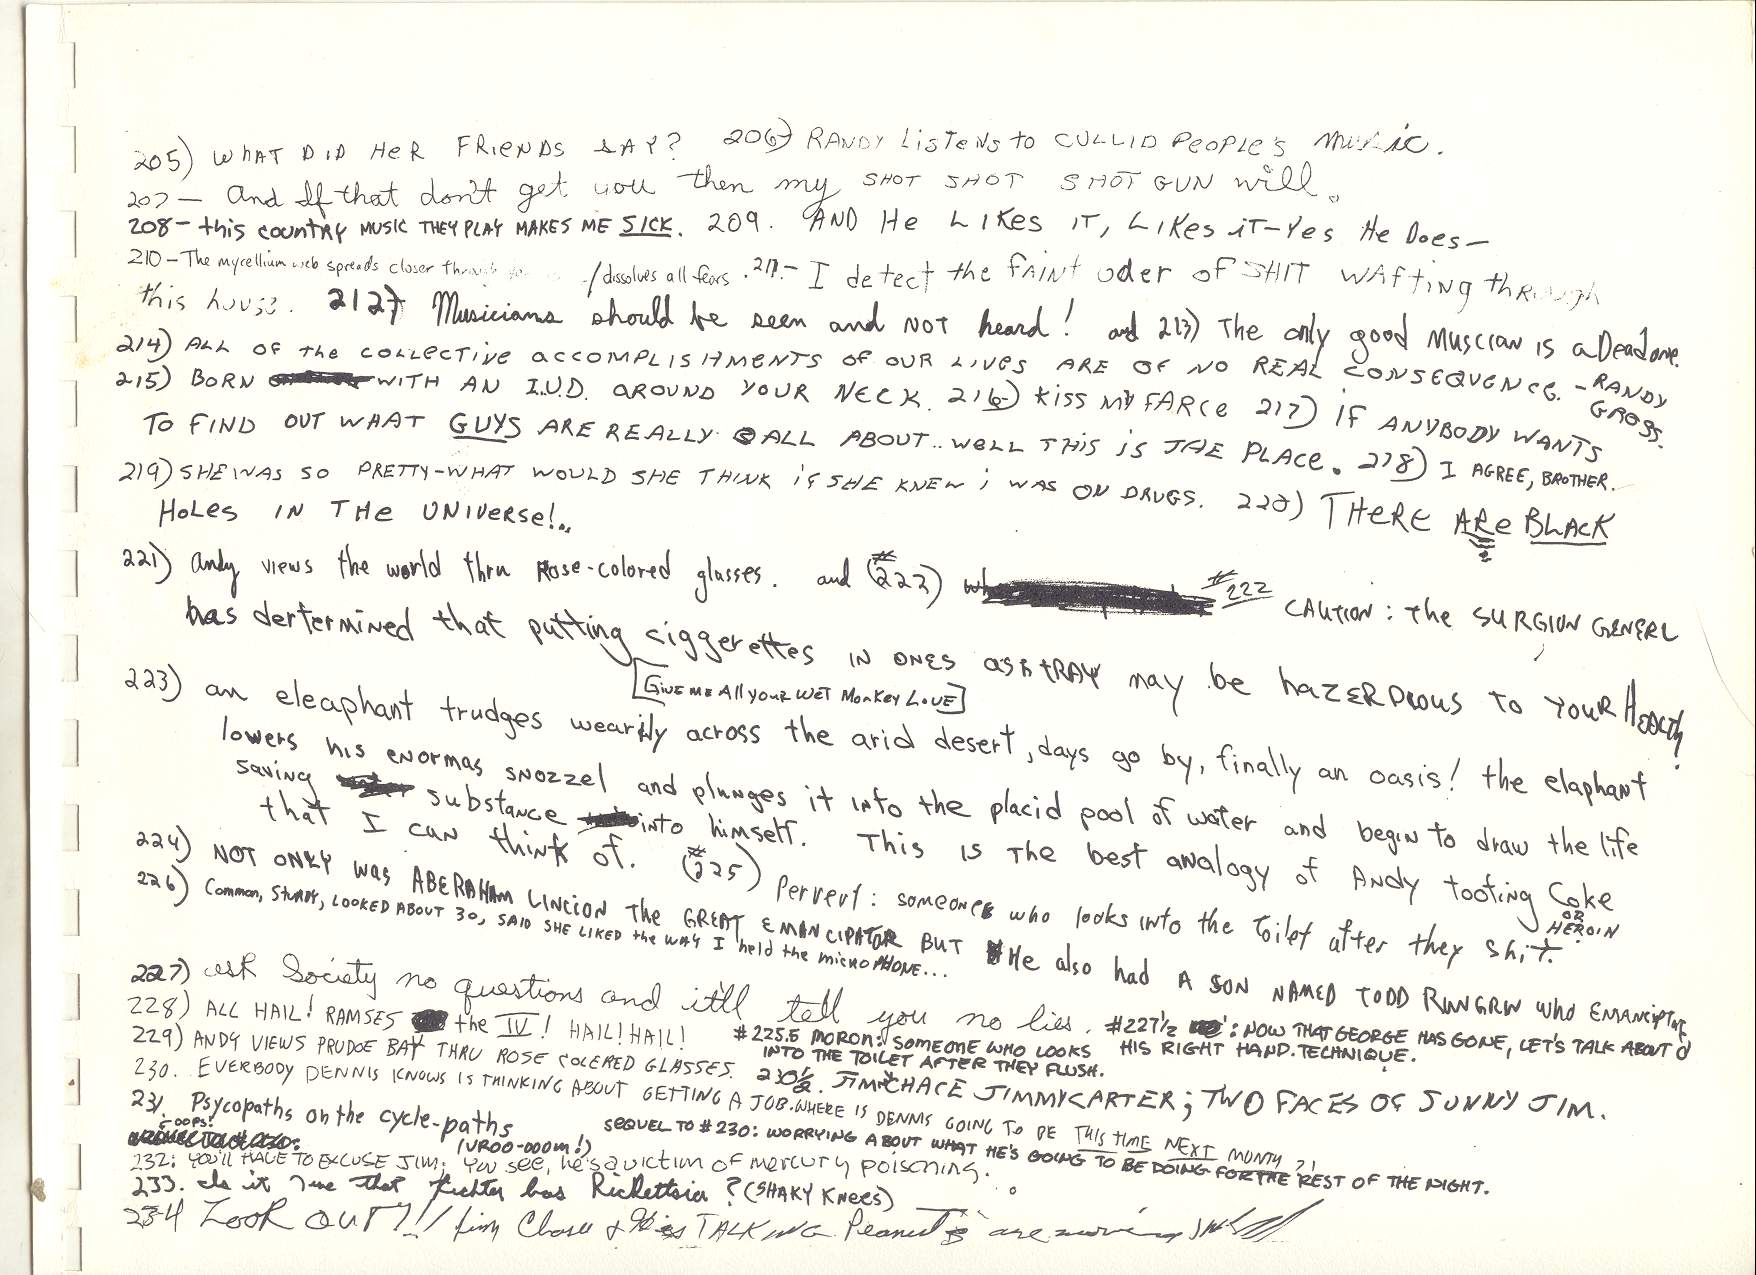 205) WHAT DID HER FRIENDS SAY? 206) RANDY LISTENS TO CULLID PEOPLE'S MUSIC.
207 — And If that don't get you then my SHOT SHOT SHOT GUN will.
208 — this COUNTRY MUSIC THEY PLAY MAKES ME SICK. 209. AND He LIKES IT, LIKES iT — Yes He Does —
210 — The mycellium web spreads closer through /dissolves all fears. 211. — I detect the FAINT oder of SHIT WAFTING through
this house. 212) Musicians should be seen and NOT heard! and 213) The only good Muscian is a Dead one.
214) ALL OF the COLLECTIVE ACCOMPLISHMENTS OF OUR LIVES ARE OF NO REAL CONSEQUENCE. — RANDY GROSS.
215) BORN WITH AN I.U.D. AROUND YOUR NECK. 216) KISS MY FARCE 217) IF ANYBODY WANTS
TO FIND OUT WHAT GUYS ARE REALLY ALL ABOUT.. WELL THIS IS THE PLACE. 218) I AGREE, BROTHER.
219) SHE WAS SO PRETTY — WHAT WOULD SHE THINK if SHE KNEW i WAS ON DRUGS. 220) THERE ARE BLACK
HOLES IN THE UNIVERSE!..
221) Andy views the world thru Rose-colored glasses. and (#222) #222 CAUTION: The SURGION GENERL
has dertermined that putting ciggerettes IN ONES ASHTRAY may be hazerdious to your Health!
[GIVE ME All your WET MONKEY LOVE]
223) an eleaphant trudges wearily across the arid desert, days go by, finally an oasis! the elaphant
lowers his enormas snozzel and plunges it into the placid pool of water and begin to draw the life
saving substance into himself. This is the best analogy of Andy tooting Coke
OR HEROIN
that I can think of. (#225) Pervert: someone who looks into the toilet after they shit.
224) NOT ONLY was ABERAHAM LINCION THE GREAT EMANCIPATOR BUT He also had A SON NAMED TODD RUNGRN who EMANCIPTATE
226) Common, STURDY, LOOKED ABOUT 30, SAID SHE LIKED the WAY I held the MICROPHONE...
227) ask Society no questions and it'll tell you no lies. #227 1/2 : NOW THAT GEORGE HAS GONE, LET'S TALK ABOUT
HIS RIGHT HAND. TECHNIQUE.
228) ALL HAIL! RAMSES the IV! HAIL! HAIL! #225.5 MORON: SOMEONE WHO LOOKS
INTO THE TOILET AFTER THEY FLUSH.
229) ANDY VIEWS PRUDOE BAY THRU ROSE COLERED GLASSES. 230 1/2. JIMMY CHACE JIMMY CARTER; TWO FACES OF SUNNY JIM.
230. EVERBODY DENNIS KNOWS IS THINKING ABOUT GETTING A JOB. WHERE IS DENNIS GOING TO BE THIS TIME NEXT MONTH?!
231. Psycopaths on the cycle-paths
(VROO-OOOM!)
SEQUEL TO #230: WORRYING ABOUT WHAT HE'S GOING TO BE DOING FOR THE REST OF THE NIGHT.
OOPS!
232: YOU'LL HAVE TO EXCUSE JIM; You see, he's a victim of mercury poisoning.
233. Is it true that Richter has Rickettsia? (SHAKY KNEES)
234 Look OUT!!! Jim Chase & His TALKING Peanuts are moving